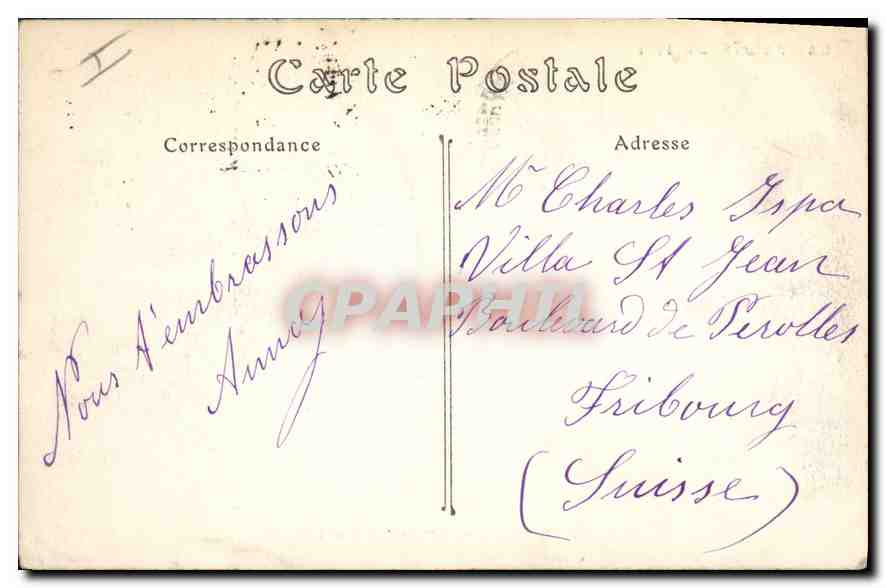 I
Carte Postale
Correspondance
Nous t'embrassons
Anny
Adresse
Mr Charles Ispa
Villa St Jean
Boulevard de Perolles
Fribourg
(Suisse)
CPAPHIL